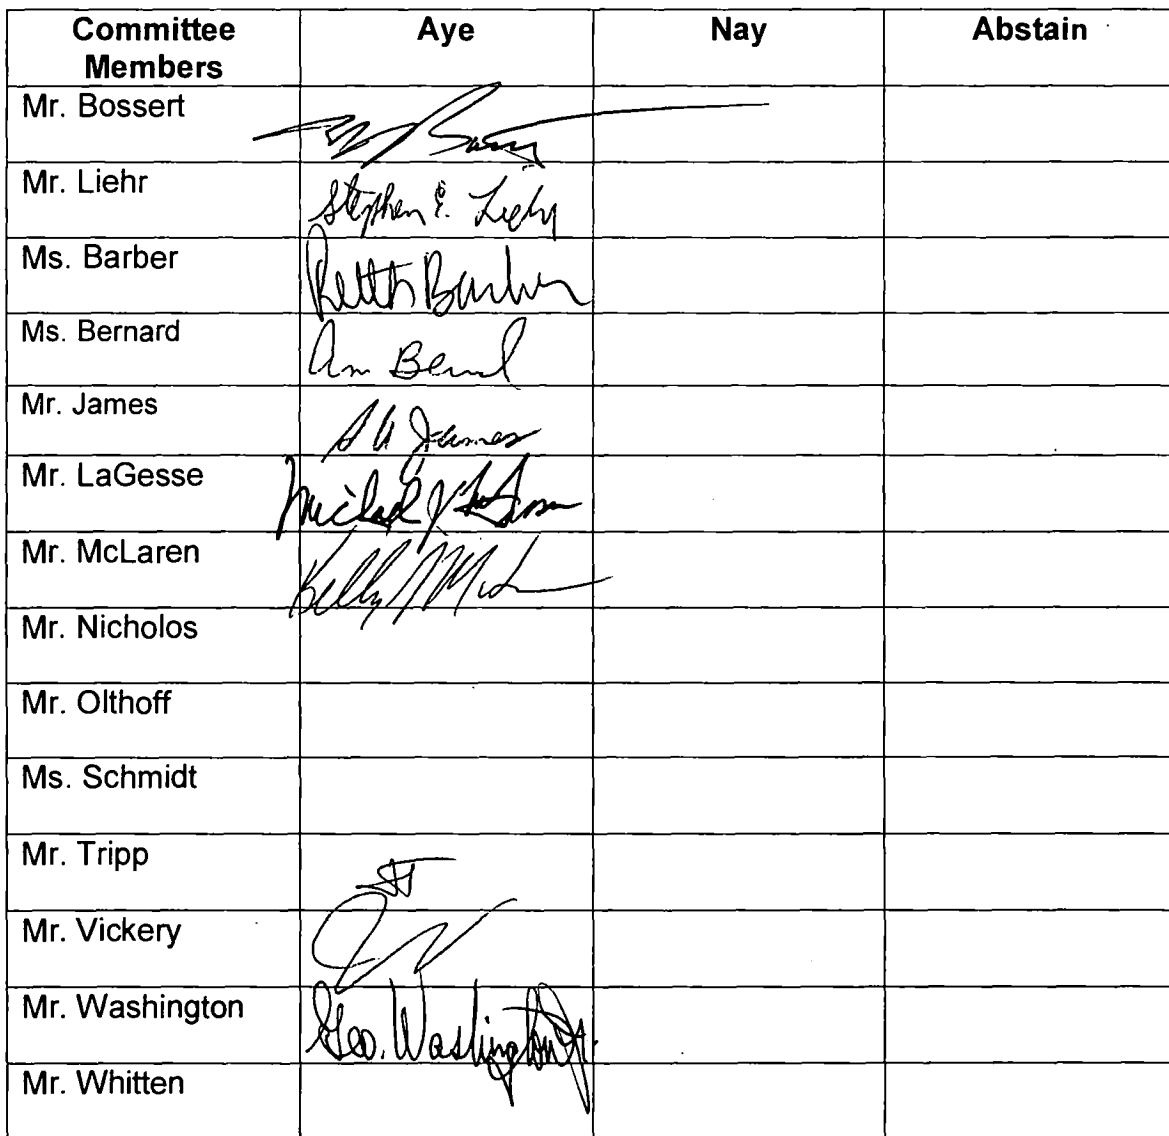 Committee Members Aye Nay Abstain
Mr. Bossert
Mr. Liehr Stephen E. Liehr
Ms. Barber Barber
Ms. Bernard
Mr. James James
Mr. LaGesse Michael J
Mr. McLaren Kelly
Mr. Nicholos
Mr. Olthoff
Ms. Schmidt
Mr. Tripp
Mr. Vickery
Mr. Washington Geo. Washington Jr.
Mr. Whitten